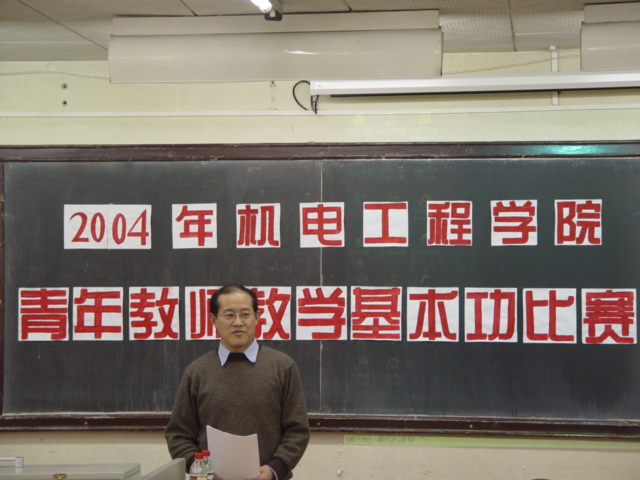 2004年机电工程学院
青年教师教学基本功比赛